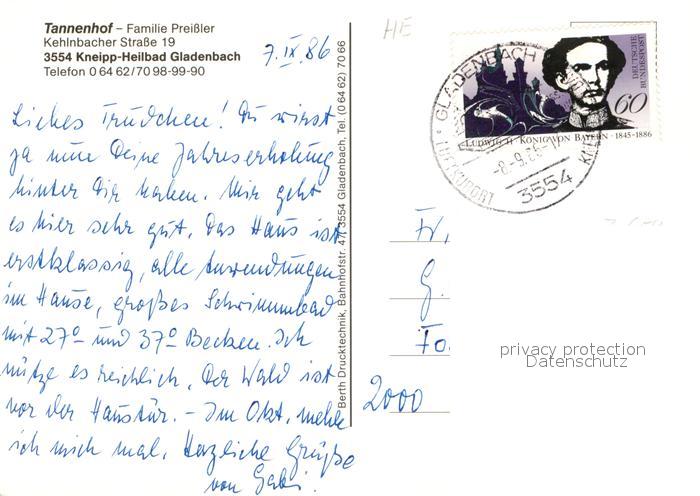 Tannenhof – Familie Preißler
Kehlnbacher Straße 19
3554 Kneipp-Heilbad Gladenbach
Telefon 0 64 62/70 98-99-90
7.IX.86
Liebes Trudchen! Du wirst
ja nun Deine Jahreserholung
hinter Dir haben. Mir geht
es hier sehr gut. Das Haus ist
erstklassig, alle Anwendungen
im Hause, großes Schwimmbad
mit 27° und 37° Becken. Ich
nütze es reichlich. Der Wald ist
vor der Haustür. – Im Okt. melde
ich mich mal. Herzliche Grüße
von Gabi.
Berth Drucktechnik, Bahnhofstr. 47, 3554 Gladenbach, Tel. (0 64 62) 70 66
HE
DEUTSCHE
BUNDESPOST
60
LUDWIG II · KÖNIG VON BAYERN · 1845-1886
GLADENBACH
LUFTKURORT
3554
Fr.
G.
Fo.
2000
privacy protection
Datenschutz